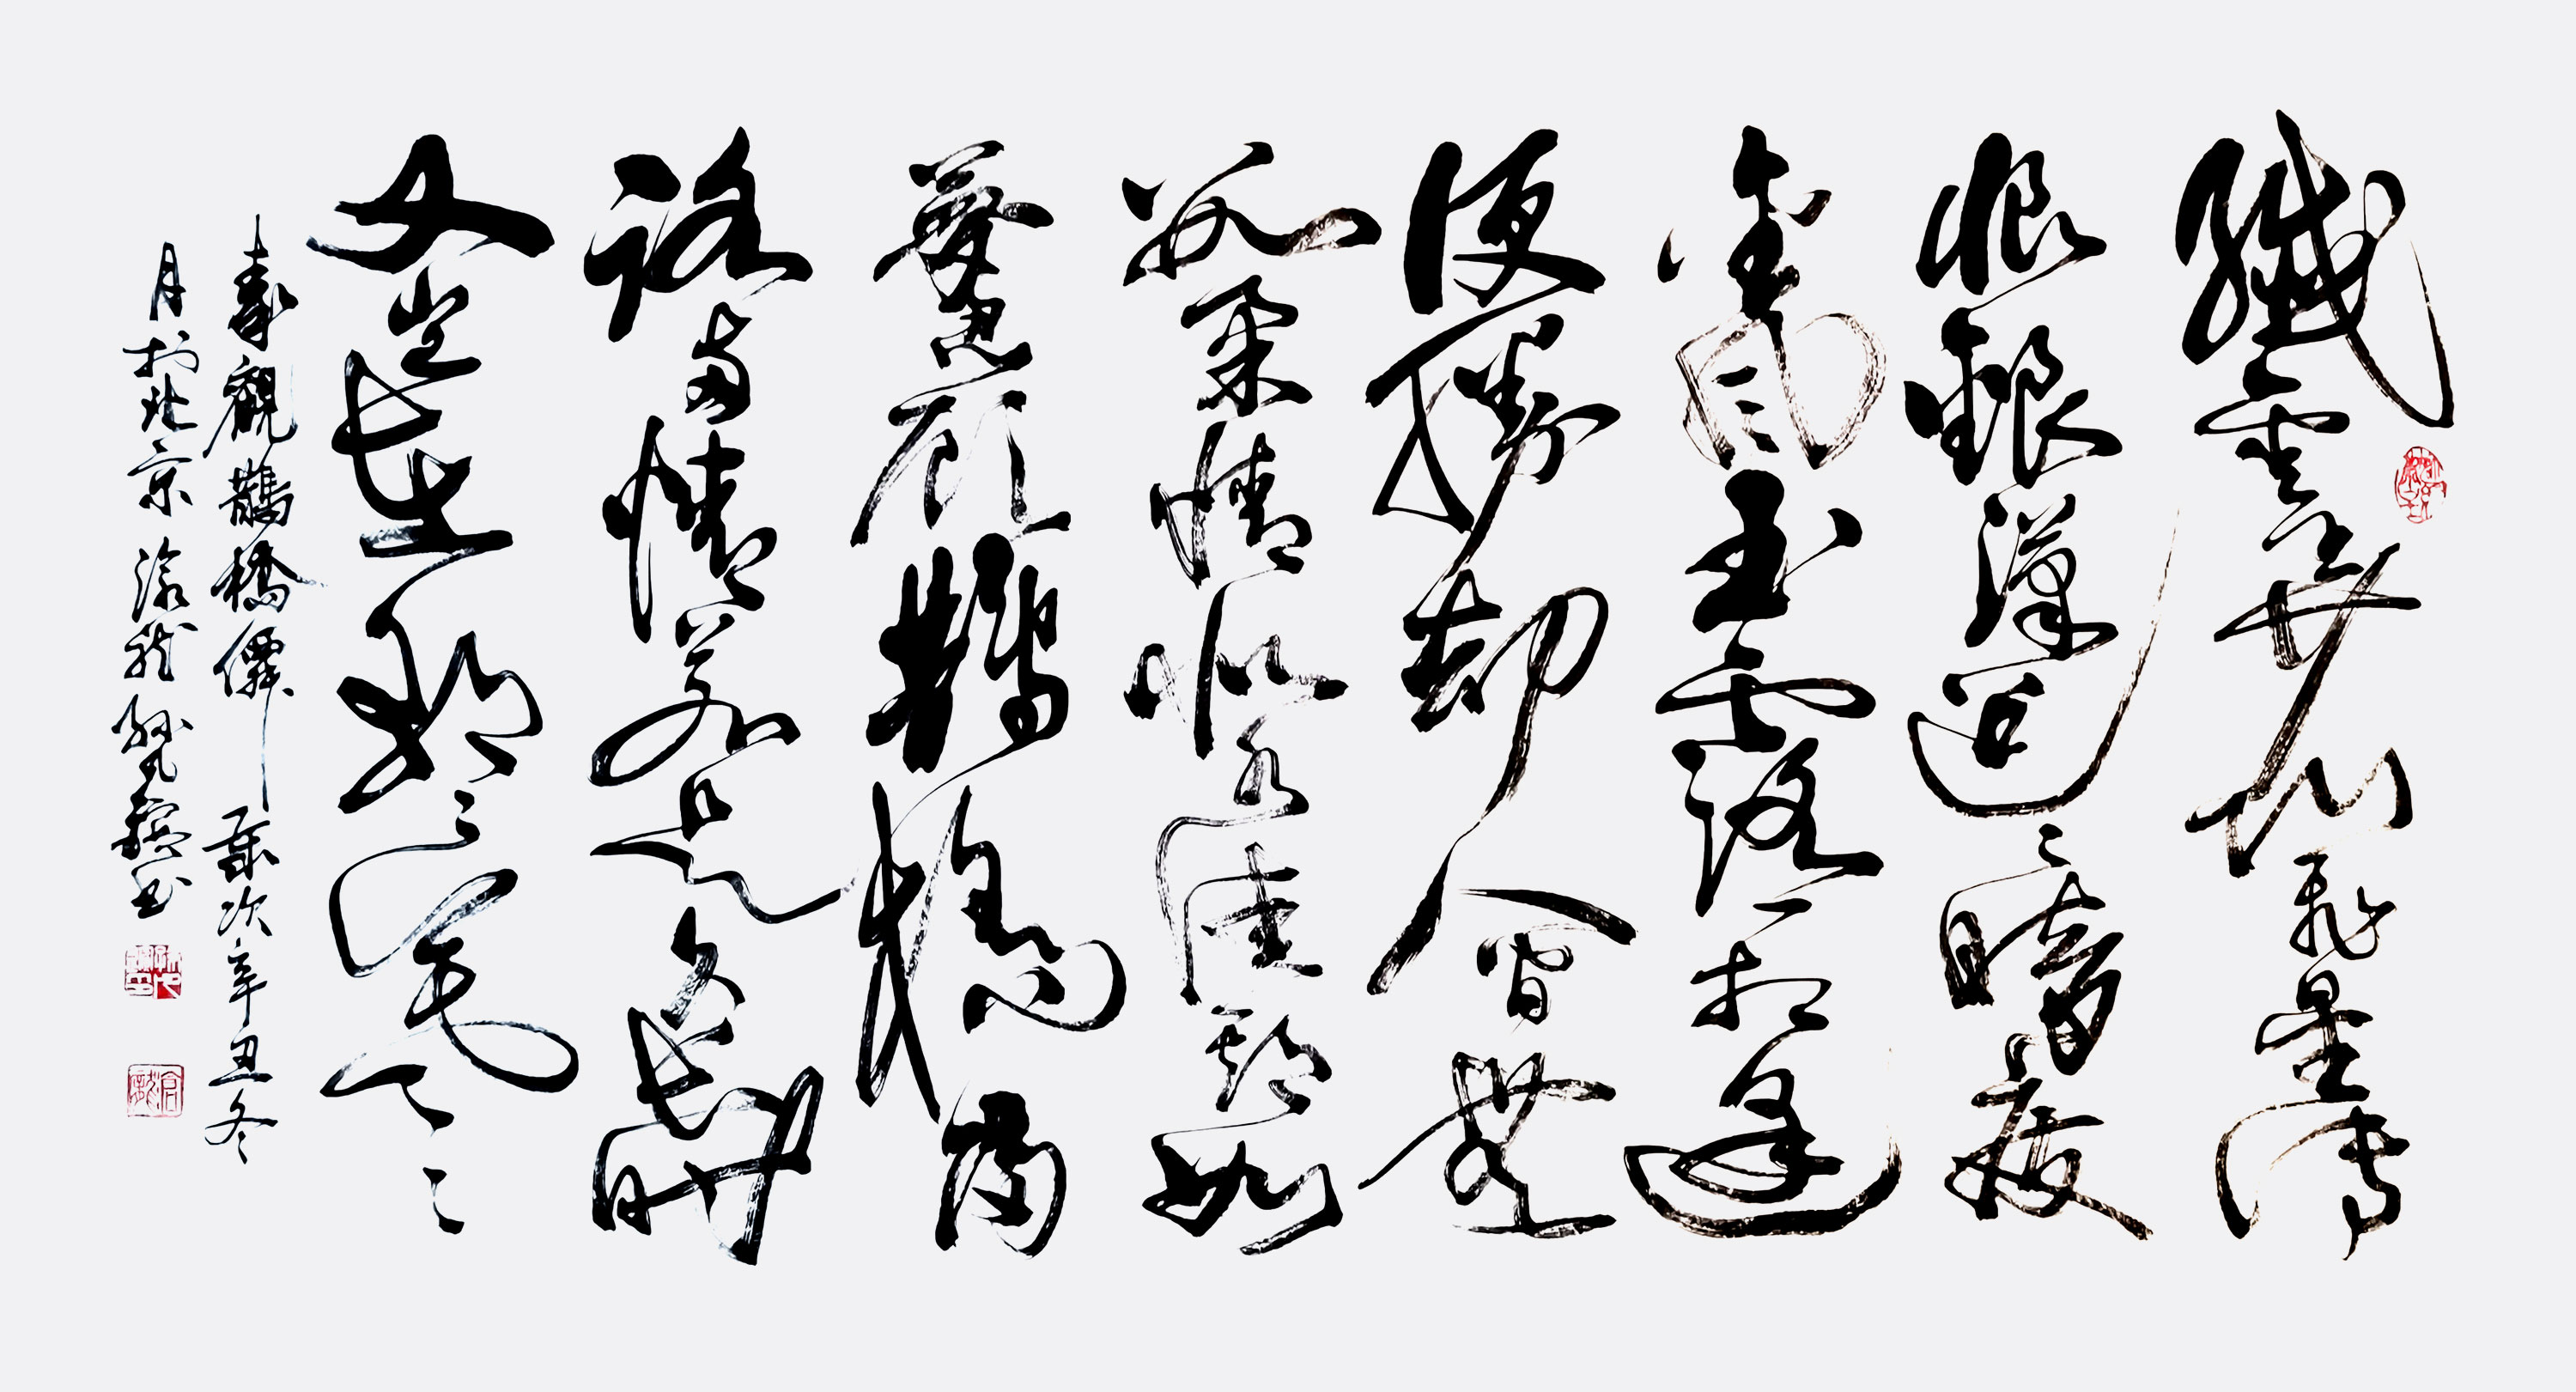 纖雲弄巧飛星傳
恨銀漢迢々暗度
金風玉露一相逢
便勝卻人間無
數柔情似水佳期如
夢忍顧鵲橋歸
路兩情若是久長時
又豈在朝々暮々
秦觀鵲橋僊 歲次辛丑冬
月於北京滄龍書